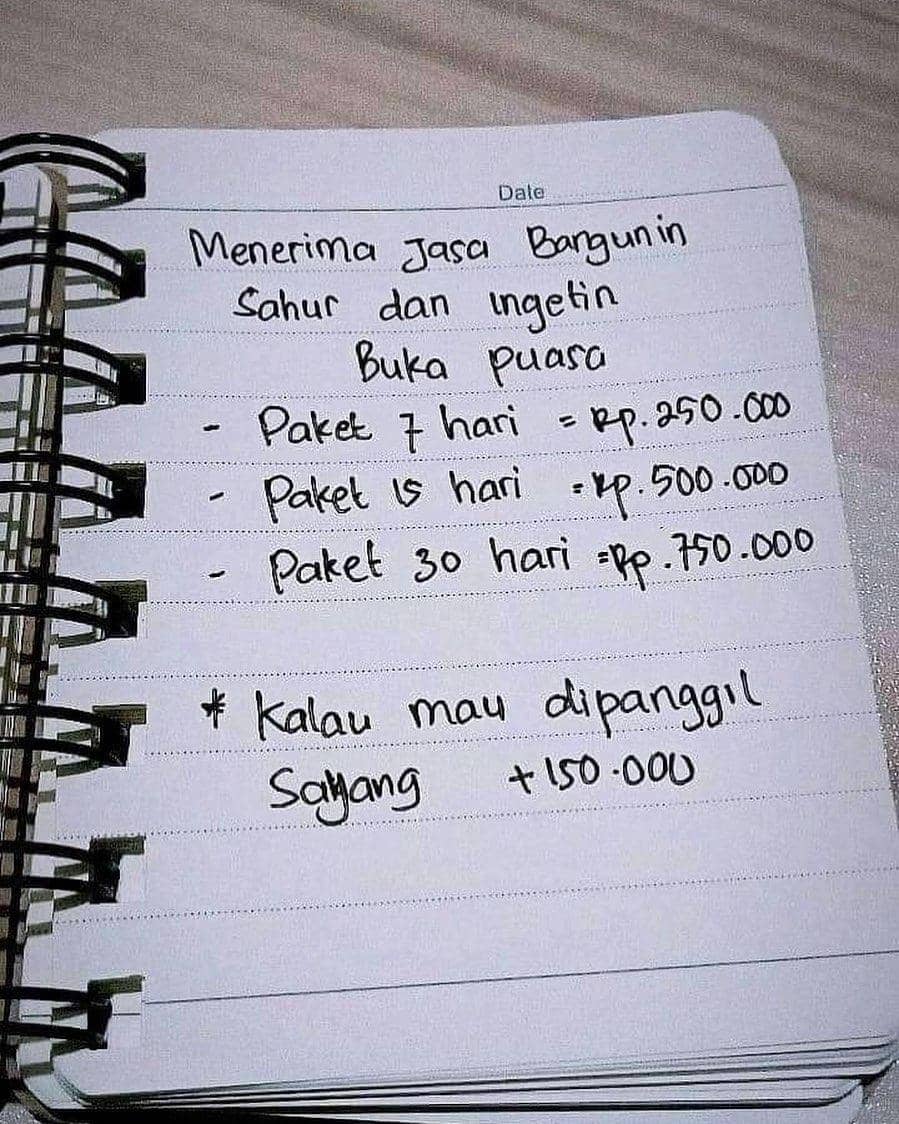 Date
Menerima Jasa Bangunin
Sahur dan ingetin
Buka puasa
- Paket 7 hari = Rp.250.000
- Paket 15 hari = Rp.500.000
- Paket 30 hari = Rp.750.000
* Kalau mau dipanggil
Sayang +150.000